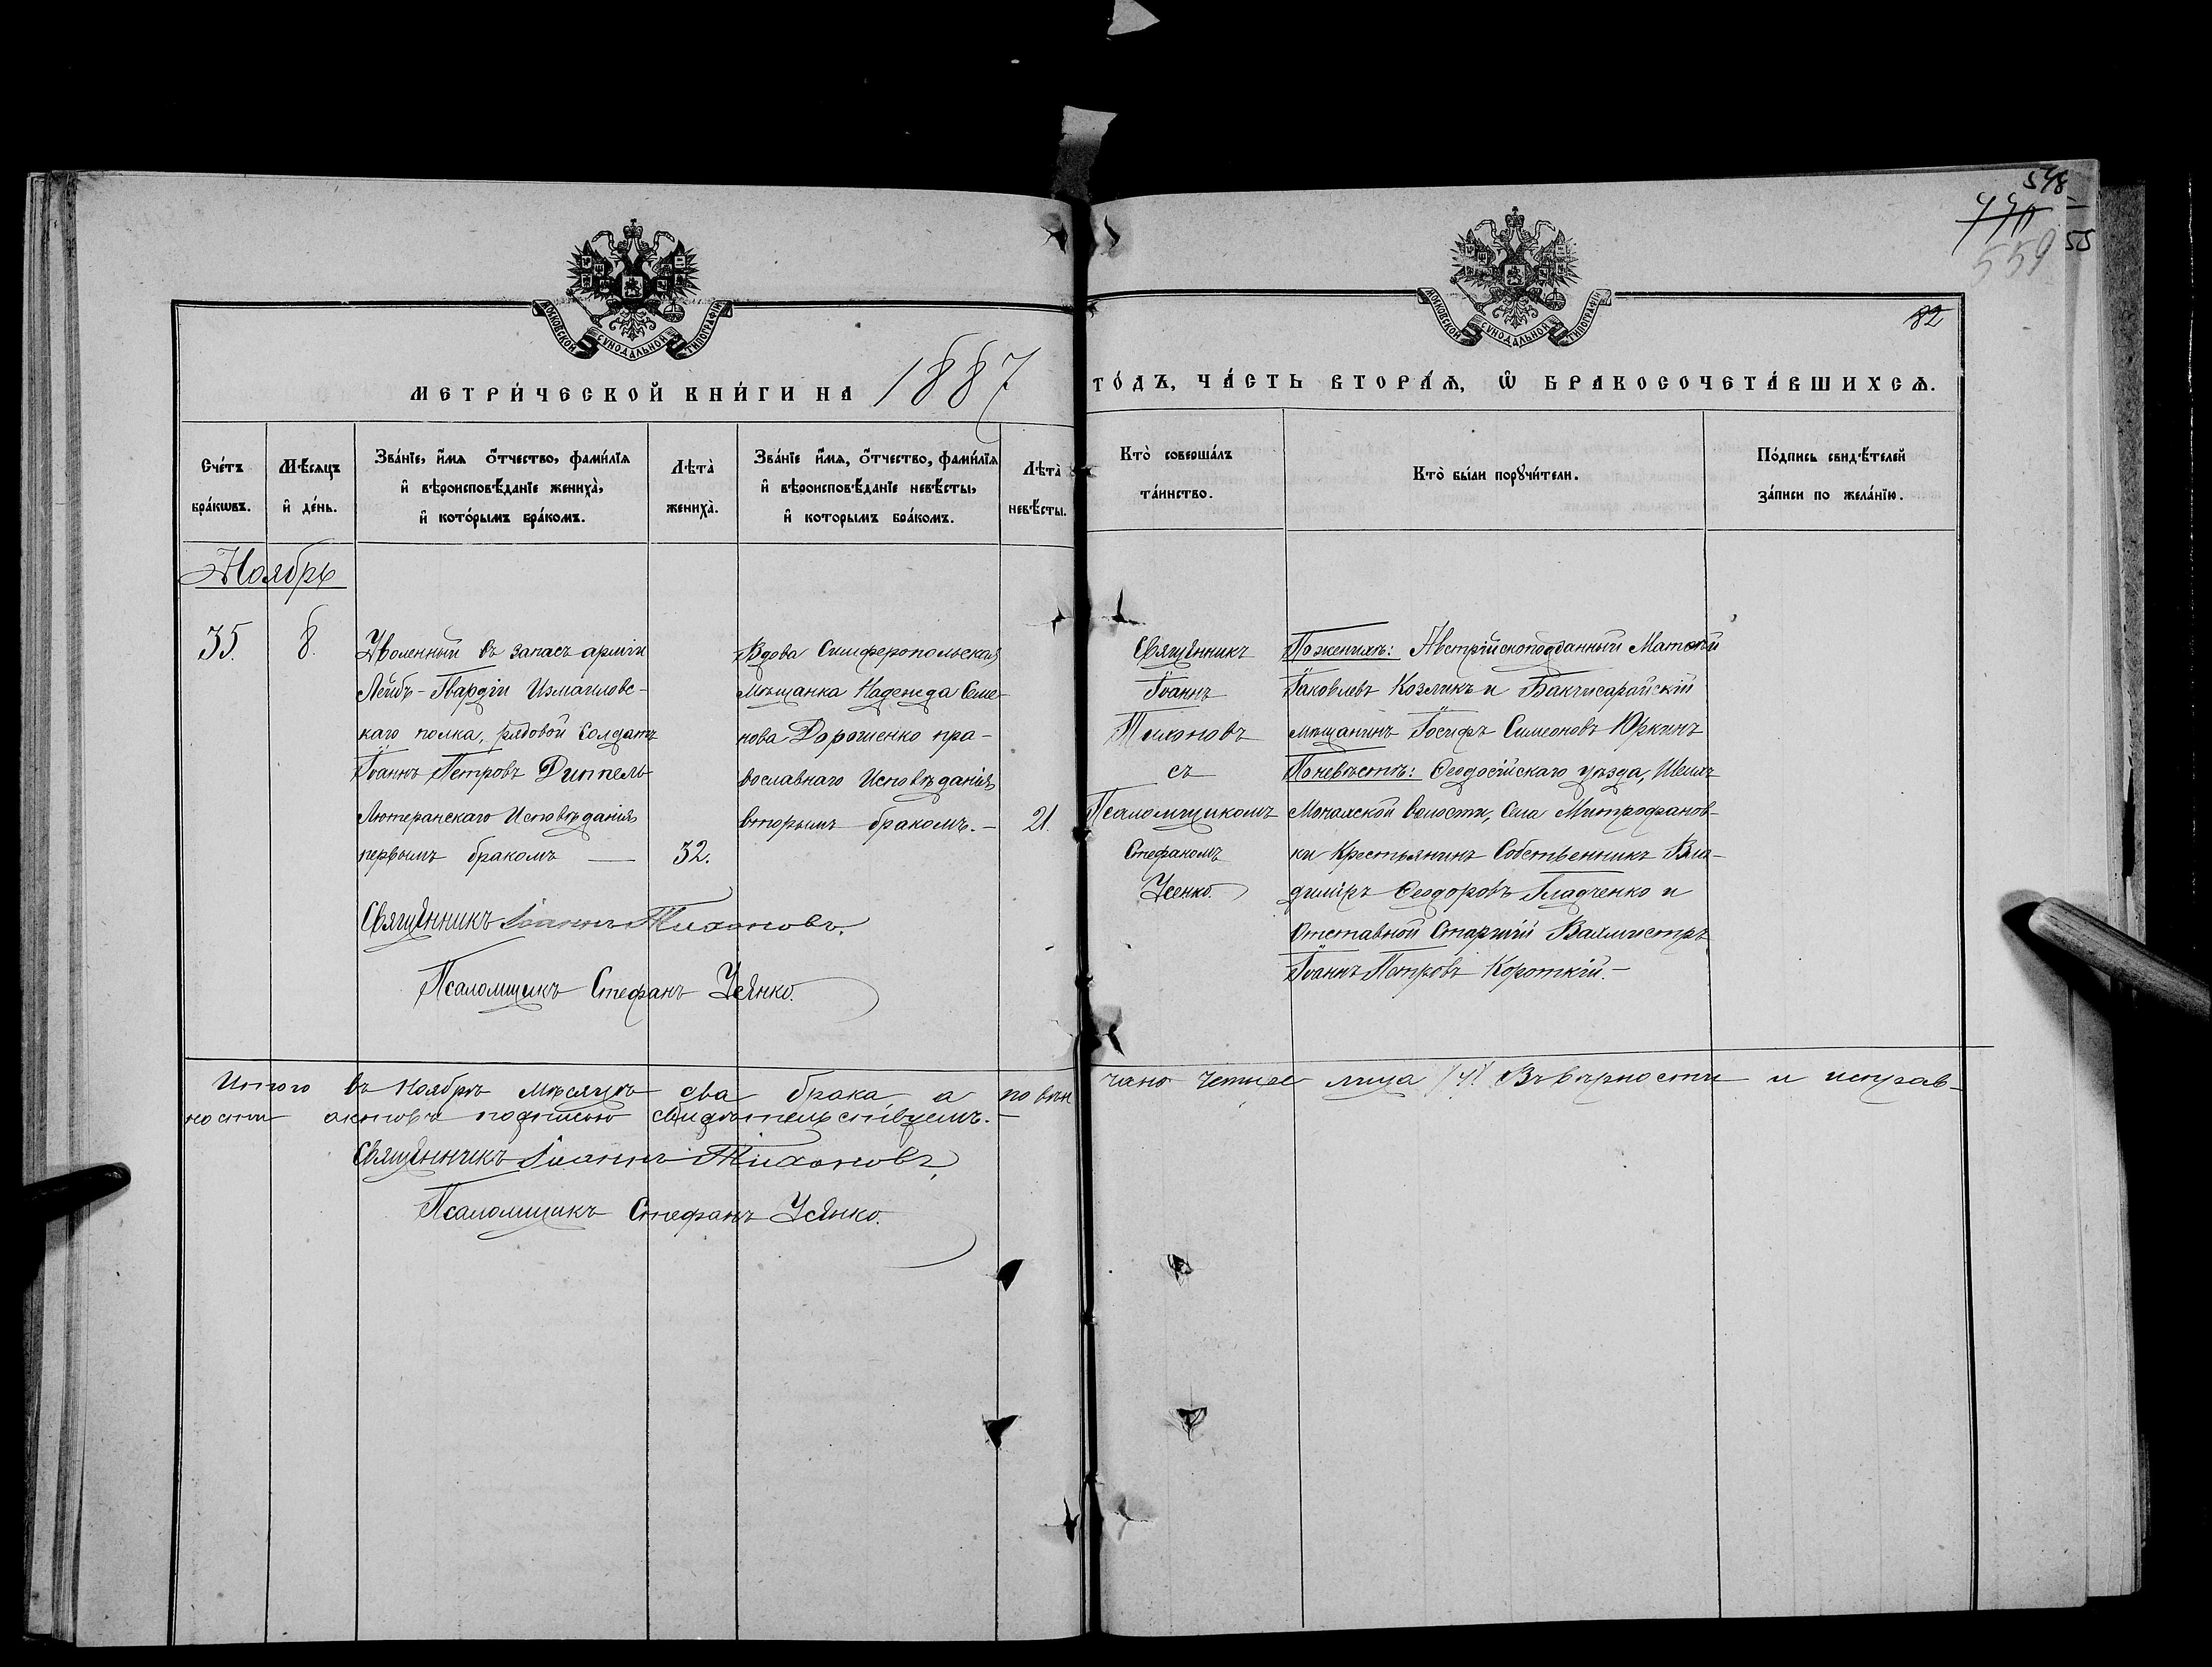 548
440
55
559
82
МОСКОВСКОЙ СѴНОДАЛЬНОЙ ТИПОГРАФІИ
МОСКОВСКОЙ СѴНОДАЛЬНОЙ ТИПОГРАФІИ
МЕТРИ́ЧЕСКОЙ КНИ́ГИ НА 1887
ГО́ДЪ, ЧА́СТЬ ВТОРА́Ѧ, Ѽ БРАКОСОЧЕТА́ВШИХСѦ.
Сче́тъ
бра́кѡвъ.
Мѣ́сѧцъ
и҆ де́нь.
Зва́нїе, и҆́мѧ ѻ҆́тчество, фами́лїѧ
и҆ вѣроисповѣ́данїе жениха̀,
и҆ кото́рымъ бра́комъ.
Лѣта̀
жениха̀.
Зва́нїе и҆́мѧ, ѻ҆́тчество, фами́лїѧ
и҆ вѣроисповѣ́данїе невѣ́сты,
и҆ которымъ бра́комъ.
Лѣта̀
невѣ́сты.
Кто̀ соверша́лъ
та́инство.
Кто̀ бы́ли порꙋчи́тели.
По́дпись свидѣ́телей
за́писи по жела́нїю.
Ноябрь
35.
8.
Уволенный въ запасъ арміи
Лейбъ-Гвардіи Измаиловс-
каго полка, рядовой Солдатъ
Іоаннъ Петровъ Диппель
Лютеранскаго Исповѣданія
первымъ бракомъ —
32.
Вдова Симферопольская
мѣщанка Надежда Семе-
нова Дорошенко пра-
вославнаго Исповѣданія
вторымъ бракомъ. —
21.
Священникъ
Іоаннъ
Тихоновъ
съ
Псаломщикомъ
Стефаномъ
Усенко.
По женихѣ: Австрійскоподданный Матвѣй
Іаковлевъ Козликъ и Бакчисарайскій
мѣщанинъ Іосифъ Симеоновъ Юркинъ
По невѣстѣ: Ѳеодосійскаго уѣзда, Шейхъ
Монахской волости, Села Митрофанов-
ки Крестьянинъ Собственникъ Вла-
диміръ Ѳеодоровъ Гладченко и
Отставной Старшій Вахмистръ
Іоаннъ Петровъ Короткій. —
Священникъ Іоаннъ Тихоновъ.
Псаломщикъ Стефанъ Усенко.
Итого въ Ноябрѣ мѣсяцѣ два брака а повѣн
чано четыре лица /4/ Въ вѣрности и исправ-
ности актовъ подписью свидѣтельствуемъ. —
Священникъ Іоаннъ Тихоновъ,
Псаломщикъ Стефанъ Усенко.